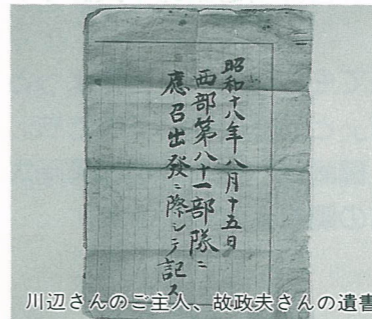 昭和十八年八月十五日
西部第八十一部隊ニ
應召出發ニ際シテ記ス
川辺さんのご主人、故政夫さんの遺書